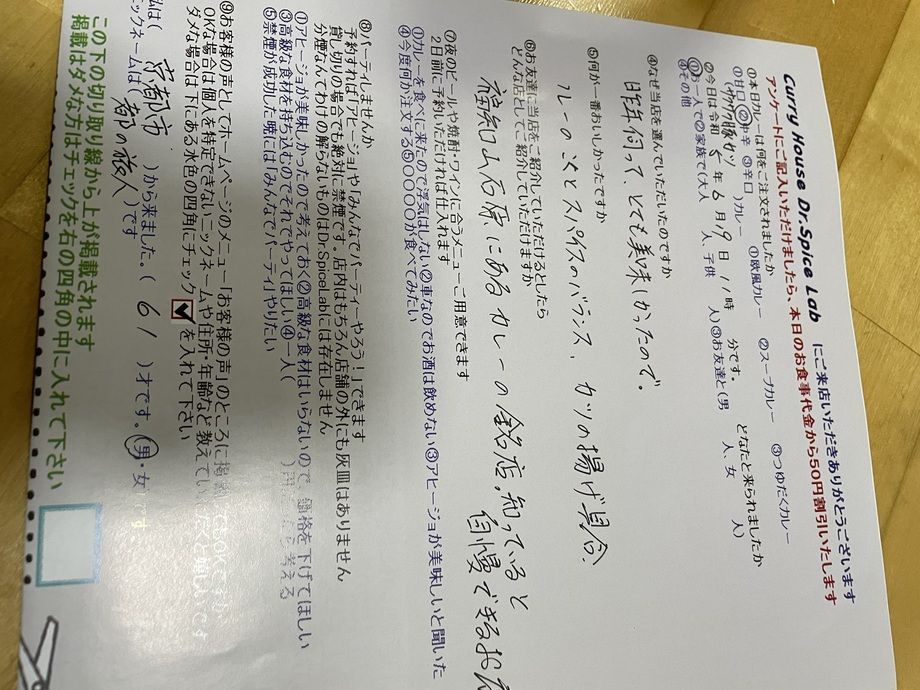 Curry House Dr.Spice Lab　にご来店いただきありがとうございます
アンケートにご記入いただけましたら、本日のお食事代金から50円割引いたします
①本日カレーは何をご注文されましたか　①欧風カレー　②スープカレー　③つゆだくカレー
①甘口②中辛　③辛口
(　　豚カツ　)カレー
②今日は令和　5　年　6　月　9　日　11　時　　分です。　どなたと来られましたか
①お一人で②ご家族で(大人　　人、子供　　人)③お友達と(男　　人、女　　人)
④その他
④なぜ当店を選んでいただいたのですか
昨年伺って、とても美味しかったので。
⑤何が一番おいしかったですか
カレーのコクとスパイスのバランス、カツの揚げ具合、
⑥お友達に当店をご紹介していただけるとしたら
どんな店としてご紹介していただけますか
福知山石原にあるカレーの銘店。知っていると
自慢できるお
⑦夜のビールや焼酎・ワインに合うメニューご用意できます
2日前に予約いただければ仕入れます
①カレーを食べに来たので浮気はしない②車なのでお酒は飲めない③アヒージョが美味しいと聞いた
④今度何か注文する⑤〇〇〇が食べてみたい
⑧パーティしませんか
予約すれば「アヒージョや「みんなでパーティーやろう！」できます
貸し切りの場合でも絶対に禁煙です。店内はもちろん店舗の外にも灰皿はありません
分煙なんてわけの解らないものはDr.SpiceLabには存在しません
①アヒージョが美味しかったので考えておく②高級な食材はいらないので、価格を下げてほしい
③高級な食材を持ち込むのでそれでやってほしい④一人(　　　)円なら考える
⑤禁煙が成功した暁にはみんなでパーティやりたい
⑨お客様の声としてホームページのメニュー「お客様の声」のところに掲載
OKな場合は個人を特定できないニックネームや住所・年齢など教えてい
ダメな場合は下にある水色の四角にチェック✓を入れて下さい
私は(　京都市　)から来ました。(　61　)才です。男・女です。
ックネームは(　都の旅人　)です
この下の切り取り線から上が掲載されます
掲載はダメな方はチェックを右の四角の中に入れて下さい